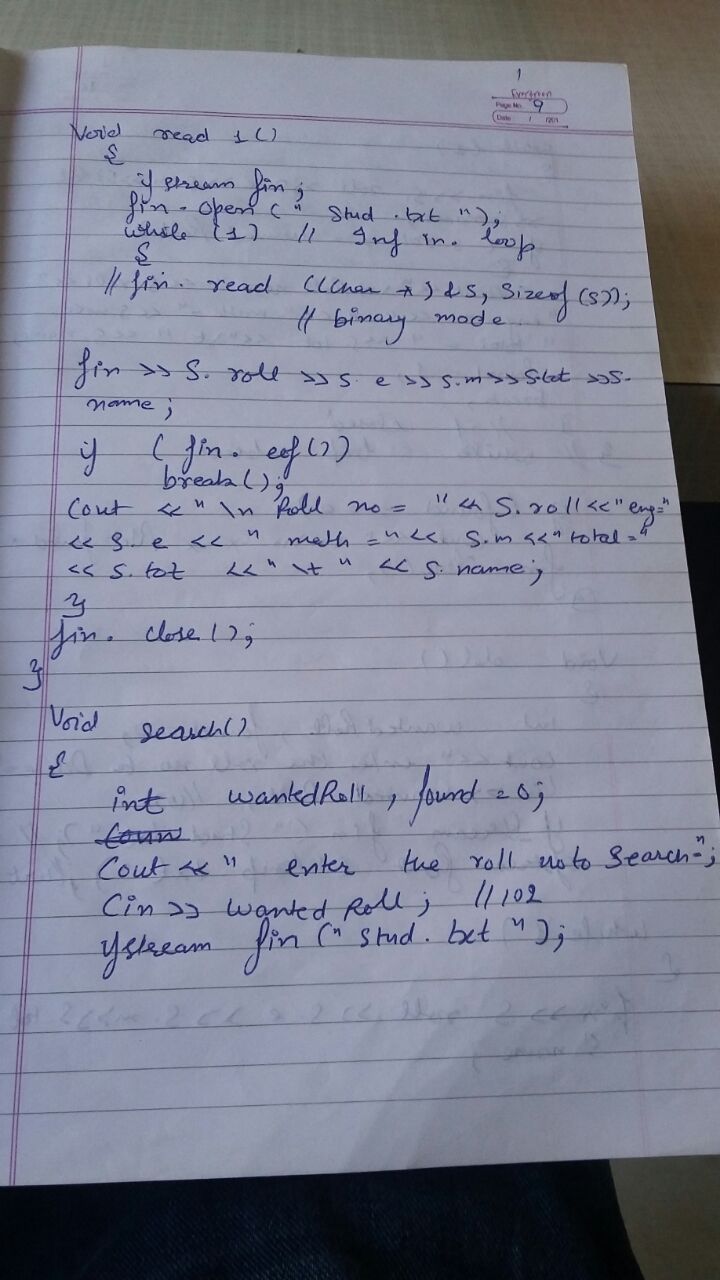 1
Evergreen
Page No. 9
Date / /201
Void read 1 ()
{
if stream fin;
fin. open (" Stud .txt ");
while (1) // Inf in. loop
{
// fin. read ((char *) & S, Sizeof (s));
// binary mode
fin >> S. roll >> s. e >> s.m >> S.tot >> S.
name;
if ( fin. eof ())
break();
Cout << " \n Roll no = " << S. roll << " eng="
<< S. e << " math = " << S. m << " total = "
<< S. tot << " \t " << S. name;
}
fin. close ();
}
Void search()
{
int wantedRoll , found = 0;
Cout << " enter the roll no to Search=";
Cin >> wanted Roll; // 102
ifstream fin (" Stud . txt ");